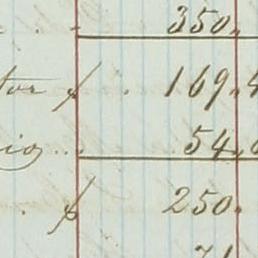 350.
tor $ . 169.4
io . . 54.6
. $ 250.